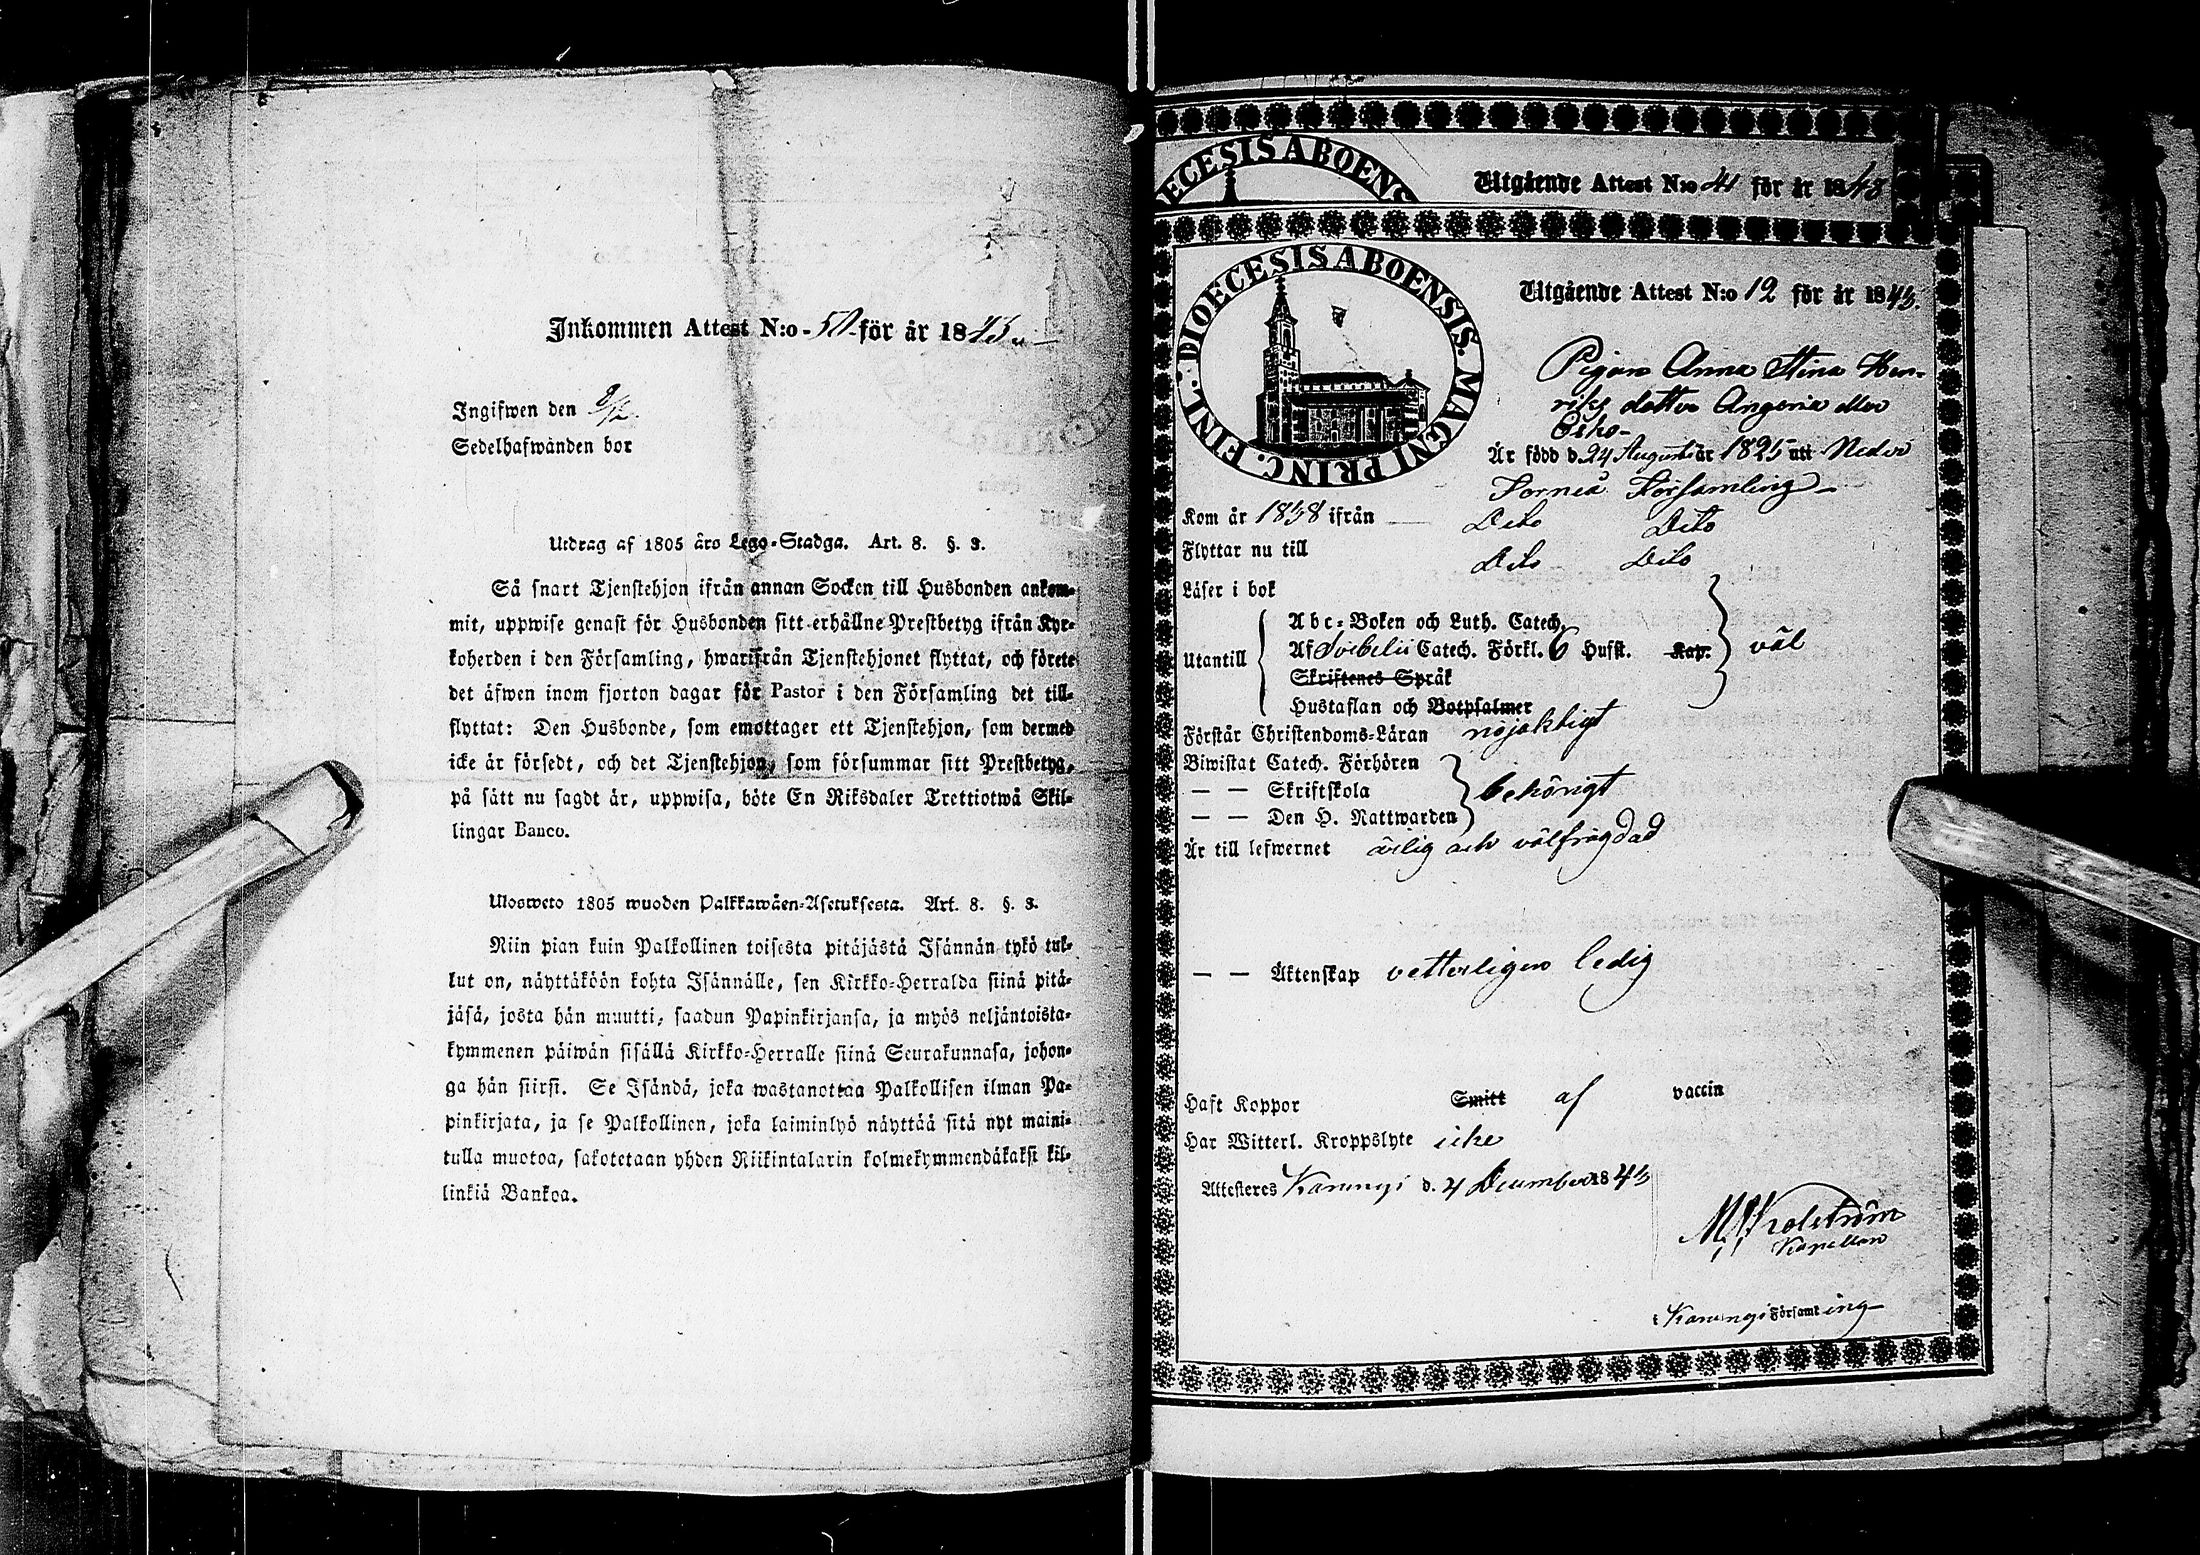 Inkommen Attest N:o - 50 - för år 1843
Ingifwen den 9/12
Sedelhafwanden bor
Utdrag af 1805 års Lego-Stadga. Art. 8. §. 3.
Så snart Tjenstehjon ifrån annan Socken till Husbonden ankom-
mit, uppwise genast för Husbonden sitt erhållne Prestbetyg ifrån Kyr-
koherden i den Församling, hwarifrån Tjenstehjonet flyttat, och förete
det äfwen inom fjorton dagar för Pastor i den Församling det till-
flyttat: Den Husbonde, som emottager ett Tjenstehjon, som dermed
icke är försedt, och det Tjenstehjon, som försummar sitt Prestbetyg,
på sätt nu sagdt är, uppwisa, böte En Riksdaler Trettiotwå Skil-
lingar Banco.
Ulosweto 1805 wuoden Palkkawäen-Asetuksesta. Art. 8. §. 3.
Niin pian kuin Palkollinen toisesta pitäjästä Isännän tykö tul-
lut on, näyttäköön kohta Isännälle, sen Kirkko-Herralda siinä pitä-
jäsä, josta hän muutti, saadun Papinkirjansa, ja myös neljäntoista-
kymmenen päiwän sisällä Kirkko-Herralle siinä Seurakunnasa, johon-
ga hän siirsi. Se Isändä, joka wastanottaa Palkollisen ilman Pa-
pinkirjata, ja se Palkollinen, joka laiminlyö näyttää sitä nyt maini-
tulla muotoa, sakotetaan yhden Riikintalarin kolmekymmendäkaksi kil-
linkiä Bankoa.
ECESIS ABOENS
Utgående Attest N:o 41 för år 1843
DIOECESIS ABOENSIS. MAGNI PRINC. FINL.
Utgående Attest N:o 12 för år 1843.
Pigan Anna Stina Hen-
riks dotter Angeria eller
Esko-
Är född d. 24 Augusti år 1825 uti Neder
Torneå Församling -
Kom år 1838 ifrån Dito Dito
Flyttar nu till Dito Dito
Läser i bok
Utantill
Abc-Boken och Luth. Catech.
Af Svebelii Catech. Förkl. 6 Hufst. Kap. väl
Skriftenes Språk
Hustaflan och Botpsalmer
Förstår Christendoms-Läran nöjaktigt
Biwistat Catech. Förhören
— — Skriftskola behörigt
— — Den H. Nattwarden
Är till lefwernet ärlig och välfrägdad
— — Äktenskap vetterligen ledig
Haft Koppor Smitt af vaccin
Har Witterl. Kroppslyte icke
Attesteres Karungi d. 4 December 1843
Kapellan
i Karungi Församling